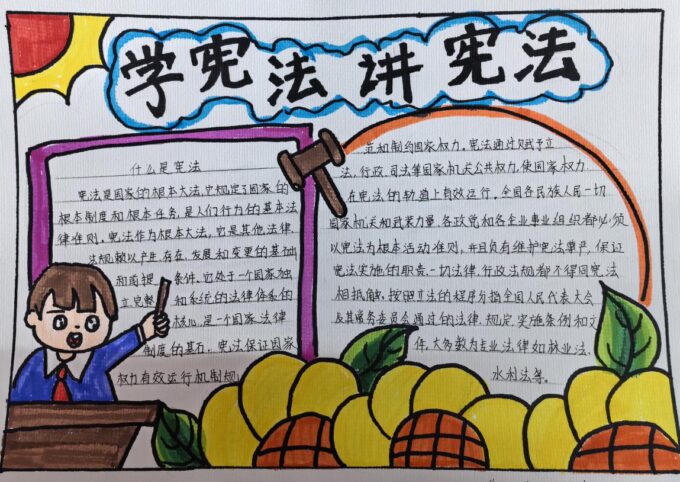 学宪法讲宪法
什么是宪法
宪法是国家的根本大法,它规定了国家的
根本制度和根本任务,是人们行为的基本法
律准则。宪法作为根本大法,它是其他法律
法规赖以产生、存在、发展和变更的基础
和前提条件,它处于一个国家独
立完整和系统的法律体系的
核心,是一个国家法律
制度的基石。宪法保证国家
权力有效运行机制规
范和制约国家权力。宪法通过赋予立
法,行政,司法等国家机关公共权力,使国家权力
在宪法的轨道上有效运行。全国各民族人民一切
国家机关和武装力量、各政党和各企业事业组织都必须
以宪法为根本活动准则,并且负有维护宪法尊严,保证
宪法实施的职责一切法律,行政法规都不得同宪法
相抵触,按照立法的程序分指全国人民代表大会
及其常务委员会通过的法律、规定,实施条例和文
件,大多数为专业法律如林业法,
水利法等。